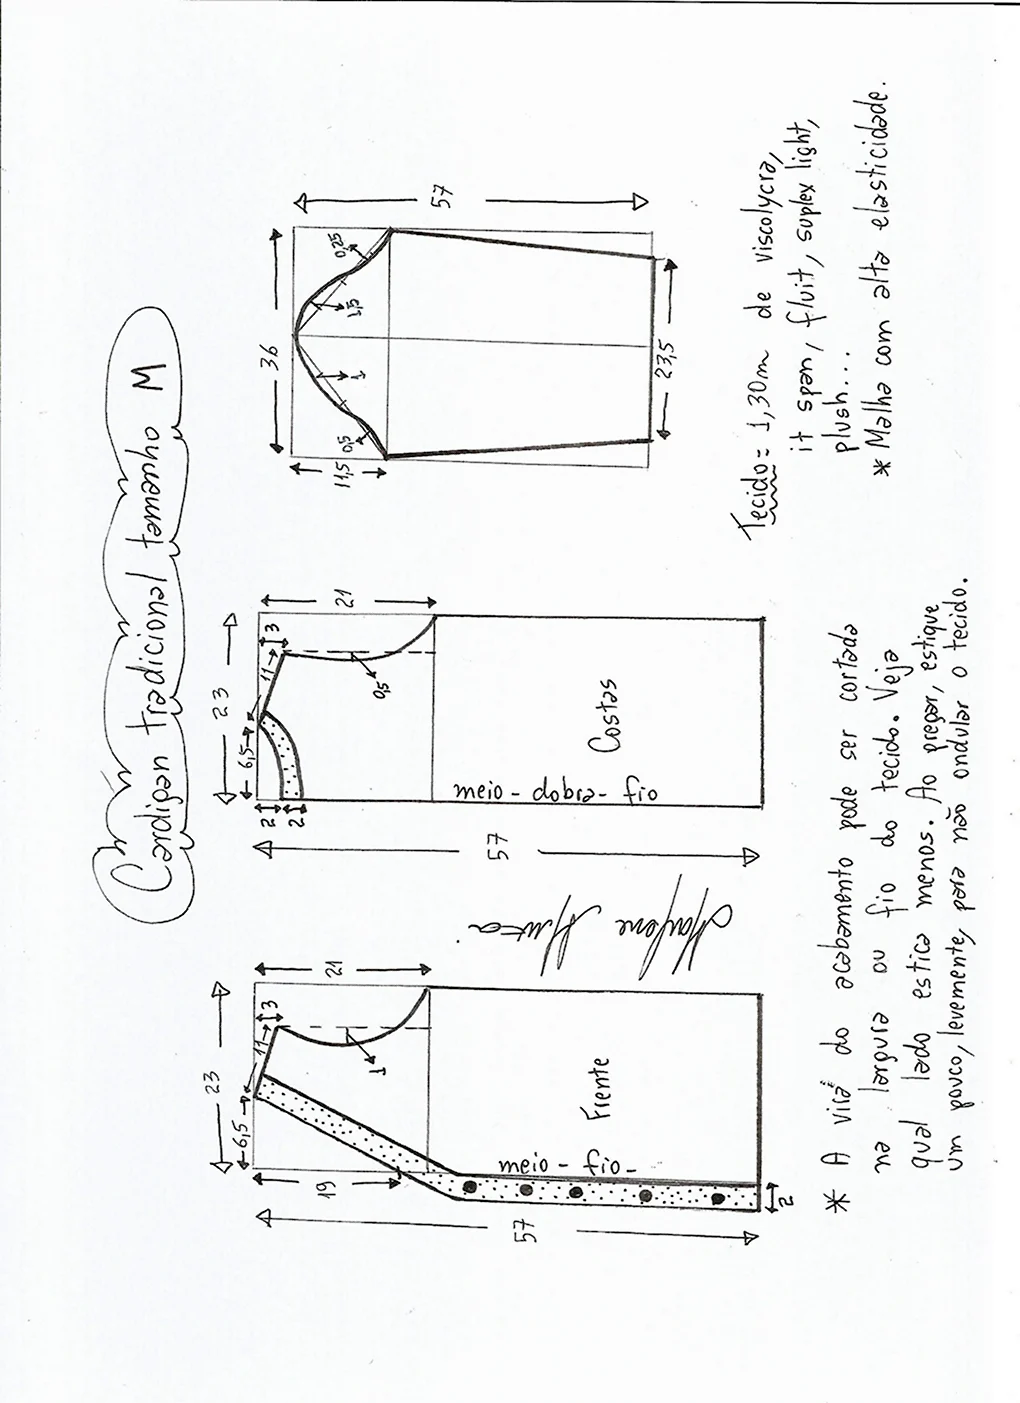 Cardigan tradicional tamanho M
23
6,5
11
3
21
19
1
57
meio - fio -
Frente
2
Marlene Mukai
23
6,5
11
3
21
2
2
0,5
57
meio - dobra - fio
Costas
36
11,5
0,5
1
1,5
0,25
57
23,5
Tecido = 1,30m de viscolycra,
it span, fluit, suplex light,
plush...
* Malha com alta elasticidade.
* A vira do acabamento pode ser cortada
na largura ou fio do tecido. Veja
qual lado estica menos. Ao pregar, estique
um pouco, levemente, para não ondular o tecido.